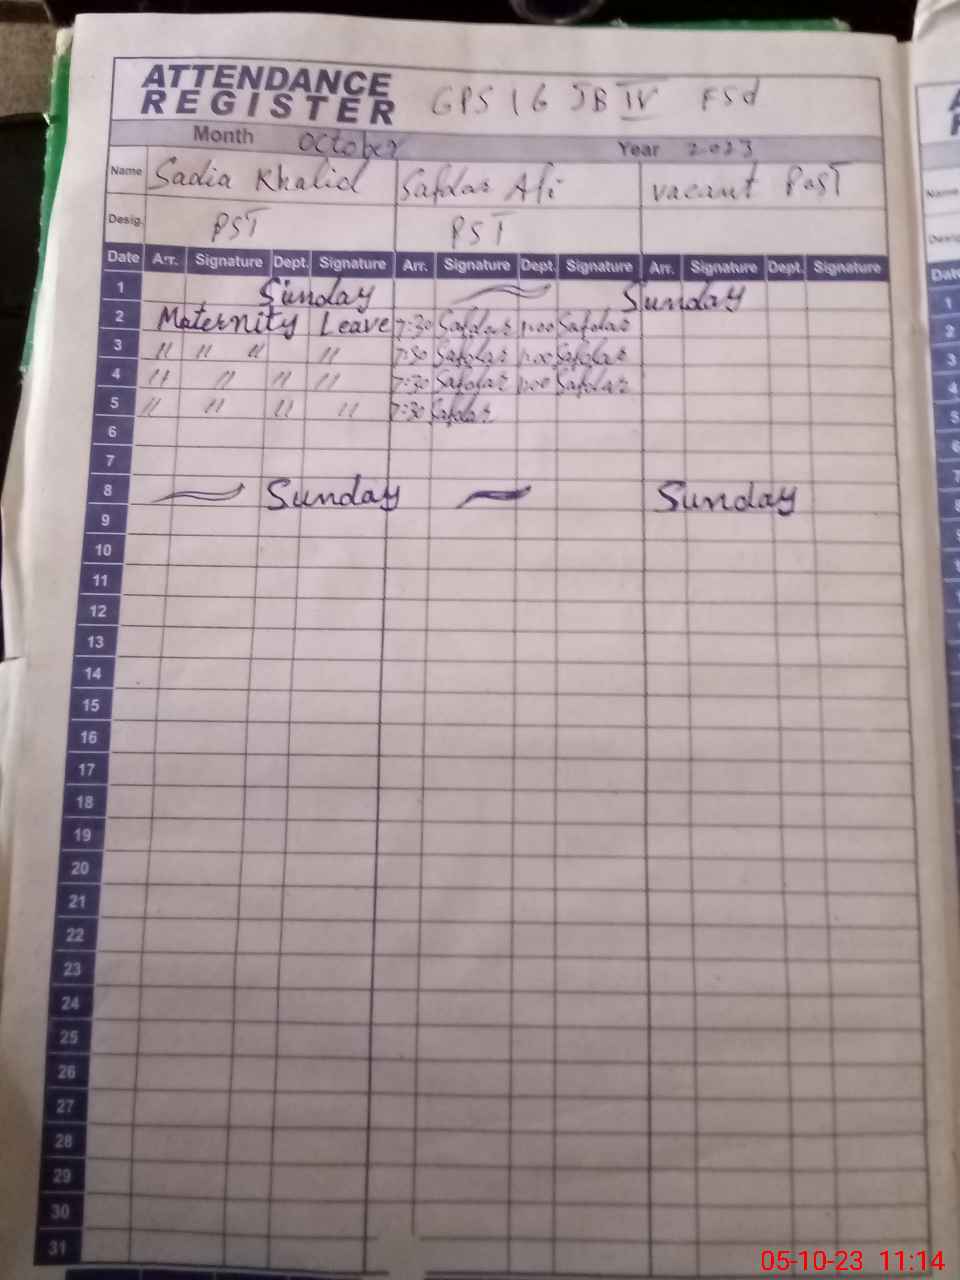 ATTENDANCE
REGISTER GPS 16 JB IV FSd
Month October Year 2023
Name Sadia Khalid Safdar Ali vacant Post
Desig. PST PST
Date Arr. Signature Dept. Signature Arr. Signature Dept. Signature Arr. Signature Dept. Signature
1 Sunday Sunday
2 Maternity Leave 7:30 Safdar 1:00 Safdar
3 " " " " 7:30 Safdar 1:00 Safdar
4 " " " " 7:30 Safdar 1:00 Safdar
5 " " " " 7:30 Safdar
6
7
8 Sunday Sunday
9
10
11
12
13
14
15
16
17
18
19
20
21
22
23
24
25
26
27
28
29
30
31
Name
Date
1
2
3
4
5
6
7
8
05-10-23 11:14